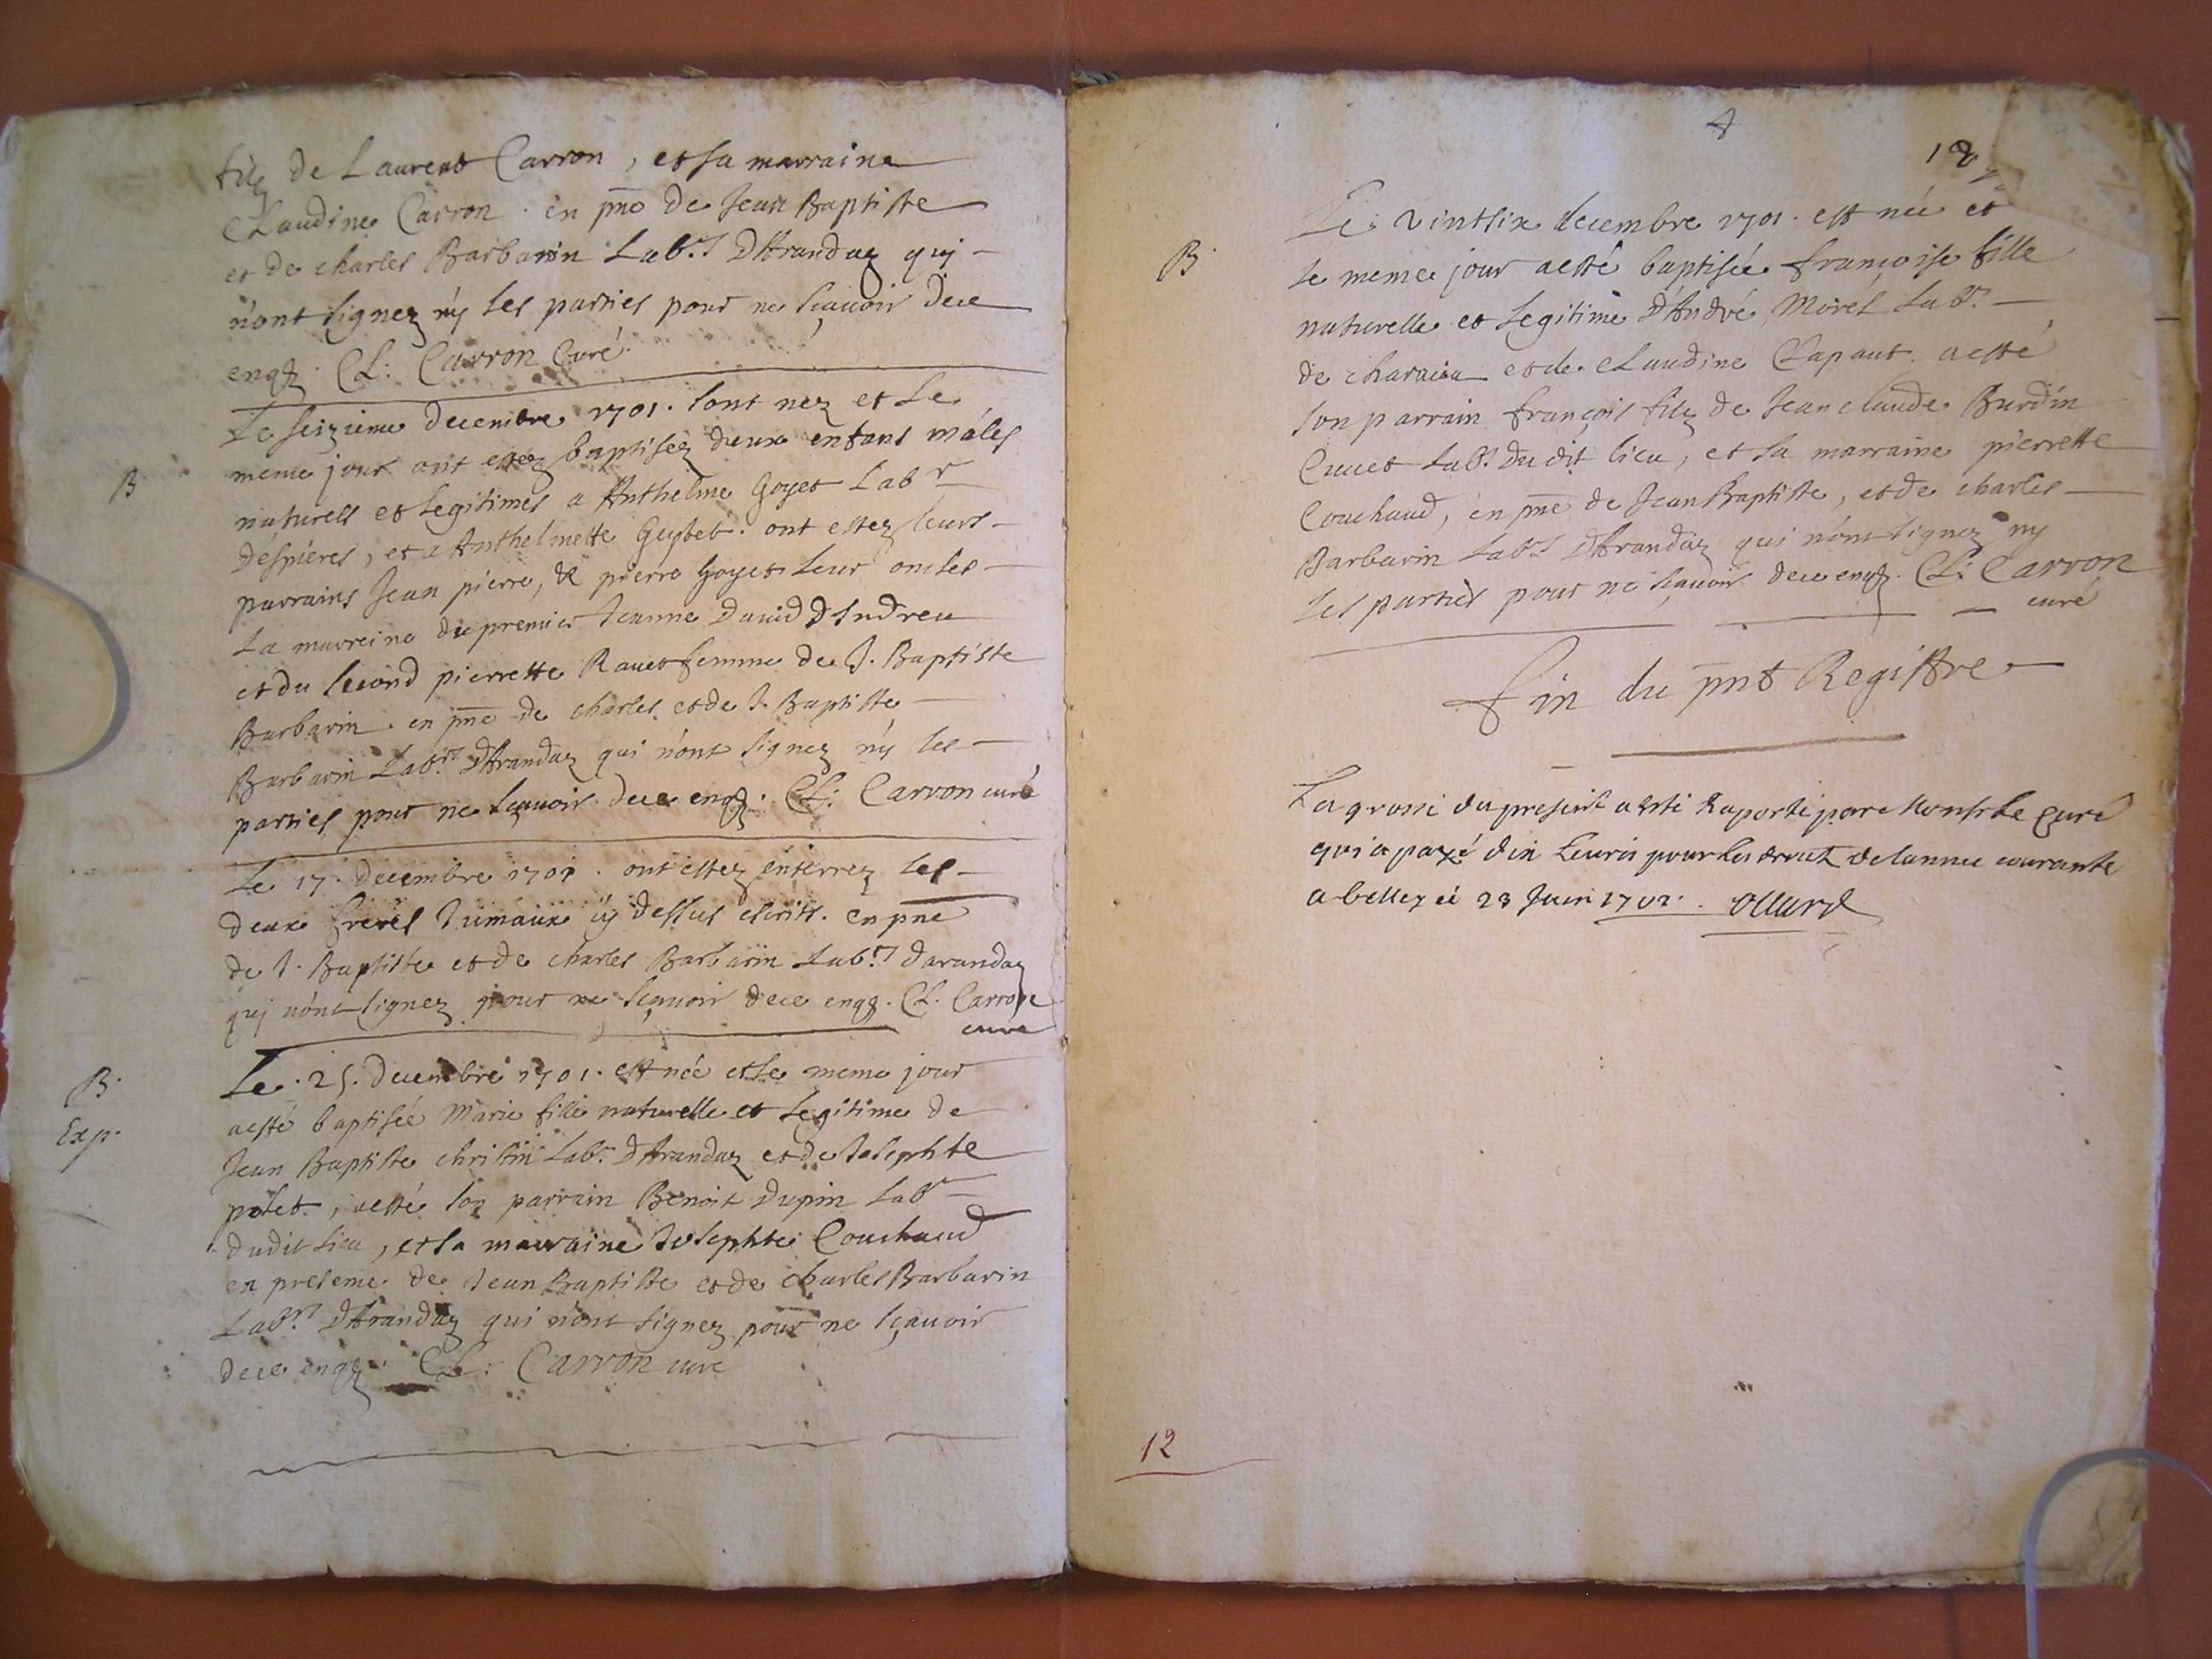 filz de Laurent Carron, et sa marraine
Claudine Carron. en pñce de Jean Baptiste
et de charles Barbarin Lab.rs D'Arandaz quj
n'ont signez nÿ les parties pour ne sçauoir de ce
enqz. Cl: Carron Curé.
Le seizieme decembre 1701. sont nez et Le
B
meme jour ont estez baptisez deux enfans mâles
naturels et Legitimes a Anthelme Goyet Labr
déspieres, et a Anthelmette Guybet. ont estez leurs
parrains Jean pierre, & pierre Goyet Leur oncles
La mareine du premier Jeanne Dauid D'Indrieu
et du second pierrette Rauet femme de J. Baptiste
Barbarin. en pñce de charles et de J. Baptiste
Barbarin Labrs D'Arandaz qui n'ont signez nÿ les
parties pour ne sçauoir de ce enqz. Cl: Carron curé
Le 17. decembre 1701. ont estez enterrez les
deux freres Jumaux cÿ dessus escrits. en pñe
de J. Baptiste et de charles Barbarin Lab.rs darandaz
quj n'ont signez pour ne sçauoir de ce enqz. Cl. Carron
curé
B.
Le. 25. decembre 1701. est née et le meme jour
Exp.
a esté baptisée Marie fille naturelle et Legitime de
Jean Baptiste christin Labr. D'Arandaz et de Josephte
polet, a esté son parrain Benoit Dupin Labr
dudit lieu, et sa marraine Josephte Couchaud
en presence de Jean Baptiste et de charles Barbarin
Labrs D'Arandaz qui n'ont signez pour ne sçauoir
de ce enqz. Cl: Carron curé
12
Le vintsix decembre 1701. est née et
B.
le meme jour a esté baptisée françoise fille
naturelle et Legitime d'André Morel Labr.
de et de Claudine Clapaut. a esté
son parrain françois filz de Jean claude Burdin
Cuuet Labr. dudit lieu, et sa marraine pierrette
Couchaud, en pñce de Jean Baptiste, et de charles
Barbarin Labrs D'Arandaz qui n'ont signez ny
les parties pour ne sçauoir de ce enqz. Cl: Carron
curé
Fin du pñt Registre
La grosse du present a esté raporté par Monsr le Curé
qui a payé dix Leures pour les droits de lannee courante
a belley cé 23 Juin 1702.
12